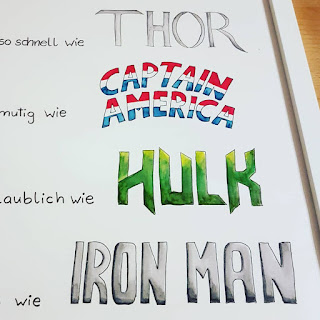 so schnell wie THOR
mutig wie CAPTAIN AMERICA
laublich wie HULK
wie IRON MAN